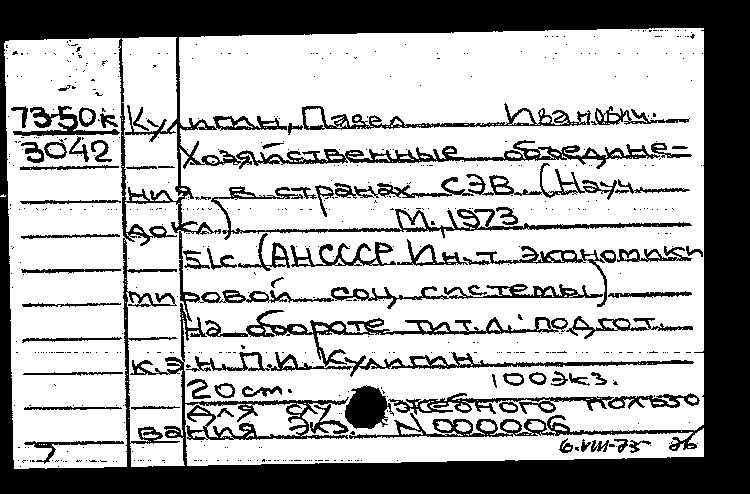 73-50к Кулигин, Павел Иванович.
3042 Хозяйственные объедине-
ния в странах СЭВ. (Науч.
докл.) М., 1973.
51с. (АН СССР. Ин-т экономики
мировой соц. системы)
На обороте тит.л.: подгот.
к.э.н. П.И. Кулигин.
20 см. 100 экз.
Для служебного пользо
вания Экз. N 000006
6.VIII-73
7